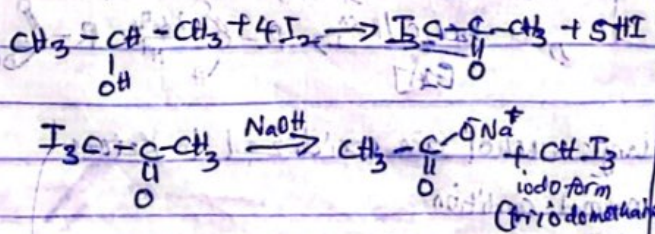 CH3 - CH - CH3 + 4 I2 → I3C - C - CH3 + 5HI
OH
O
I3C - C - CH3 NaOH → CH3 - C - O⁻Na⁺ + CHI3
O
O
iodoform
(triiodomethane